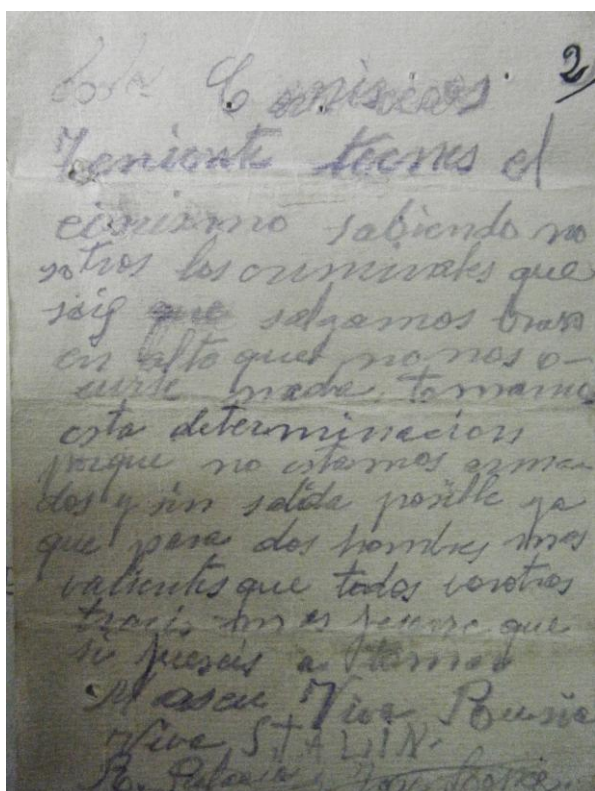 2
Teniente teeneis el
cinismo sabiendo no
sotros los criminales que
soig que salgamos brazos
en alto que no nos o-
curre nada, tomamos
esta determinacion
porque no estamos arma-
dos y sin salida posible ya
que para dos hombres mas
valientes que todos vosotros
traeis mas fuerza que
si fuerais a tomar
Viva Rusia
Viva STALIN
R.